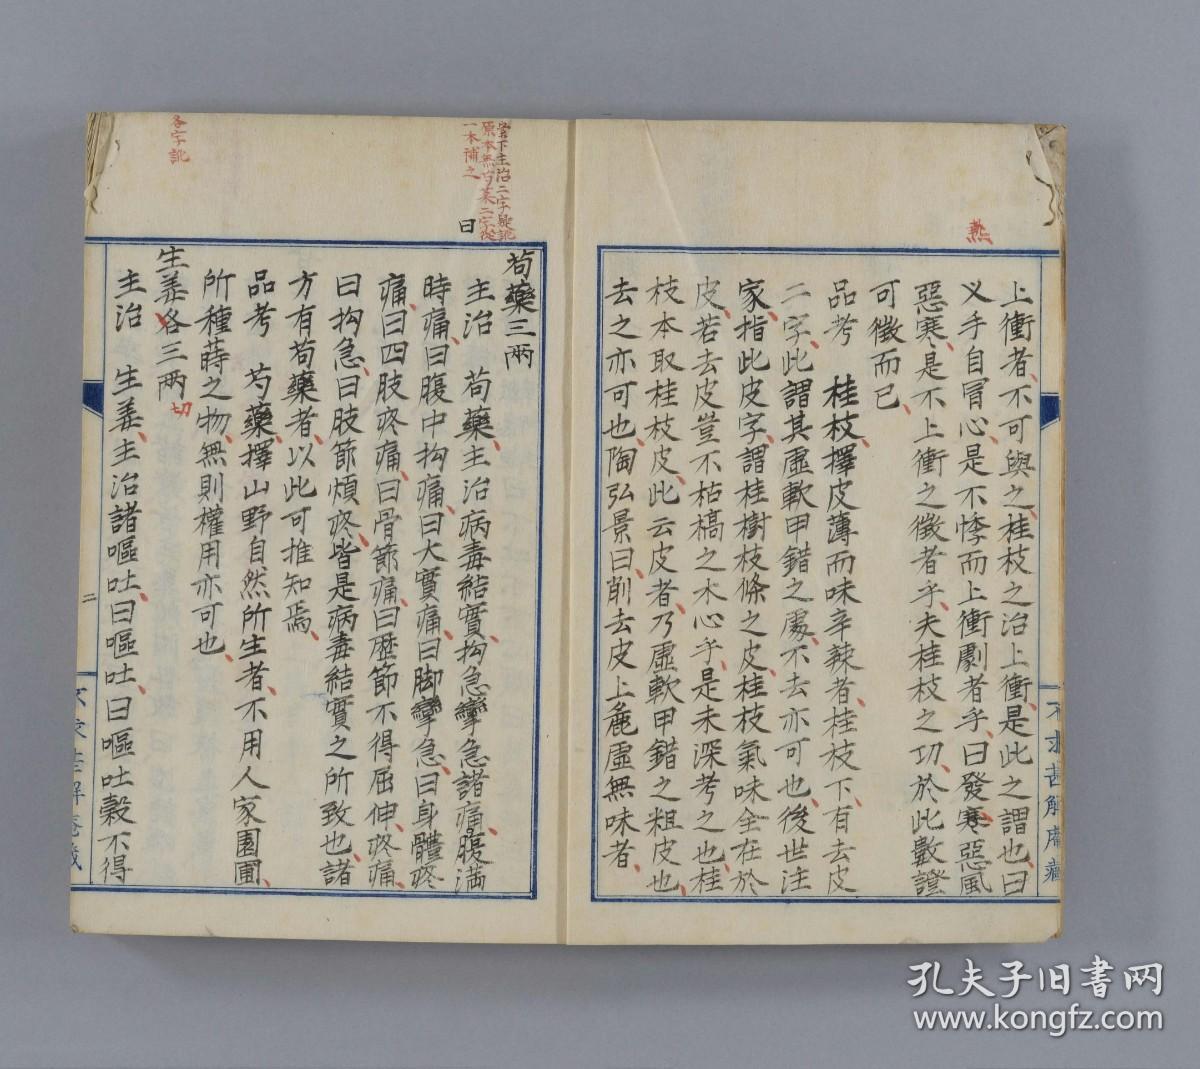 上衝者不可與之桂枝之治上衝是此之謂也曰
乂手自冒心是不悸而上衝劇者乎曰發寒惡風
惡寒是不上衝之徴者乎夫桂枝之功於此數證
可徴而已
品考 桂枝擇皮薄而味辛辣者桂枝下有去皮
二字此謂其虛軟甲錯之處不去亦可也後世注
家指此皮字謂桂樹枝條之皮桂枝氣味全在於
皮若去皮豈不枯槁之木心乎是未深考之也桂
枝本取桂枝皮此云皮者乃虛軟甲錯之粗皮也
去之亦可也陶弘景曰削去皮上麁虛無味者
熱
不求甚解庵藏
芍藥三兩
主治 芍藥主治病毒結實拘急攣急諸痛腹満
時痛曰腹中拘痛曰大實痛曰脚攣急曰身體疼
痛曰四肢疼痛曰骨節痛曰歷節不得屈伸疼痛
曰拘急曰肢節煩疼皆是病毒結實之所致也諸
方有芍藥者以此可推知焉
品考 芍藥擇山野自然所生者不用人家園圃
所種蒔之物無則權用亦可也
生姜各三兩
切
主治 生姜主治諸嘔吐曰嘔吐曰嘔吐穀不得
下主治二字疑訛
一本補之
曰
各字訛
二
孔夫子旧书网
www.kongfz.com